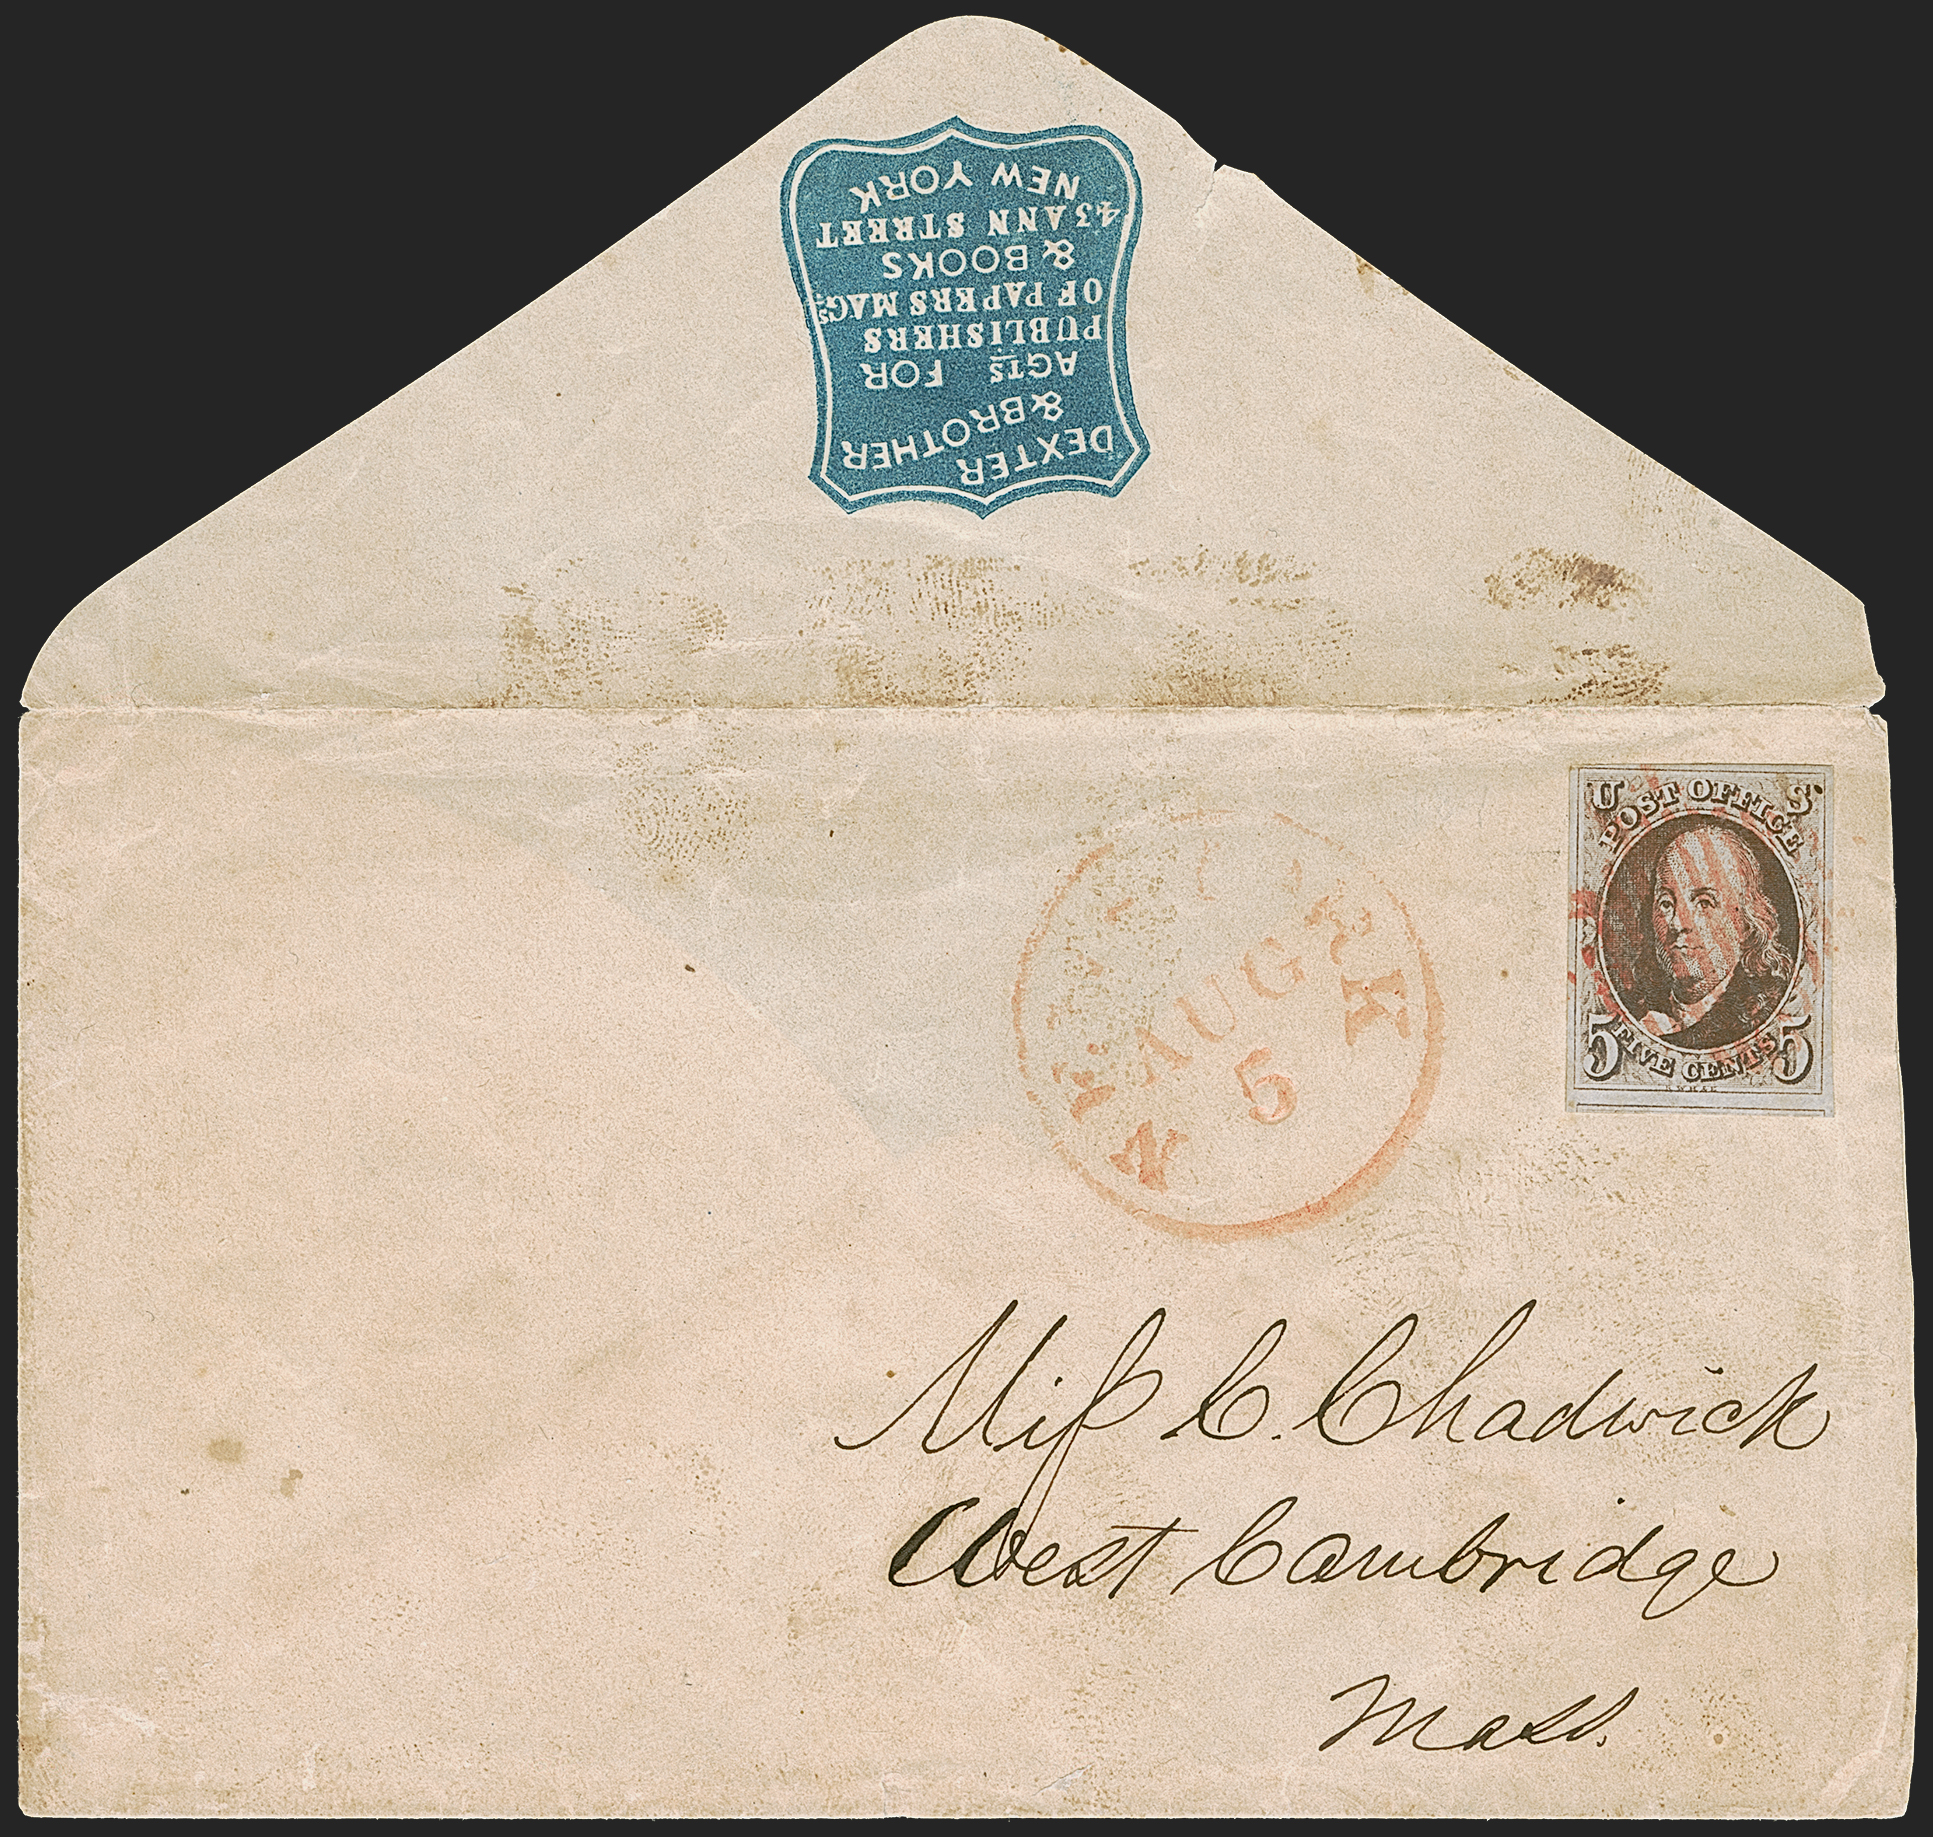 DEXTER
& BROTHER
AGTS FOR
PUBLISHERS
OF PAPERS MAGS
& BOOKS
43 ANN STREET
NEW YORK
U S
POST OFFICE
5 FIVE CENTS 5
R.W.H.& E.
NEW YORK
AUG
5
Miſs C. Chadwick
West Cambridge
Mass.